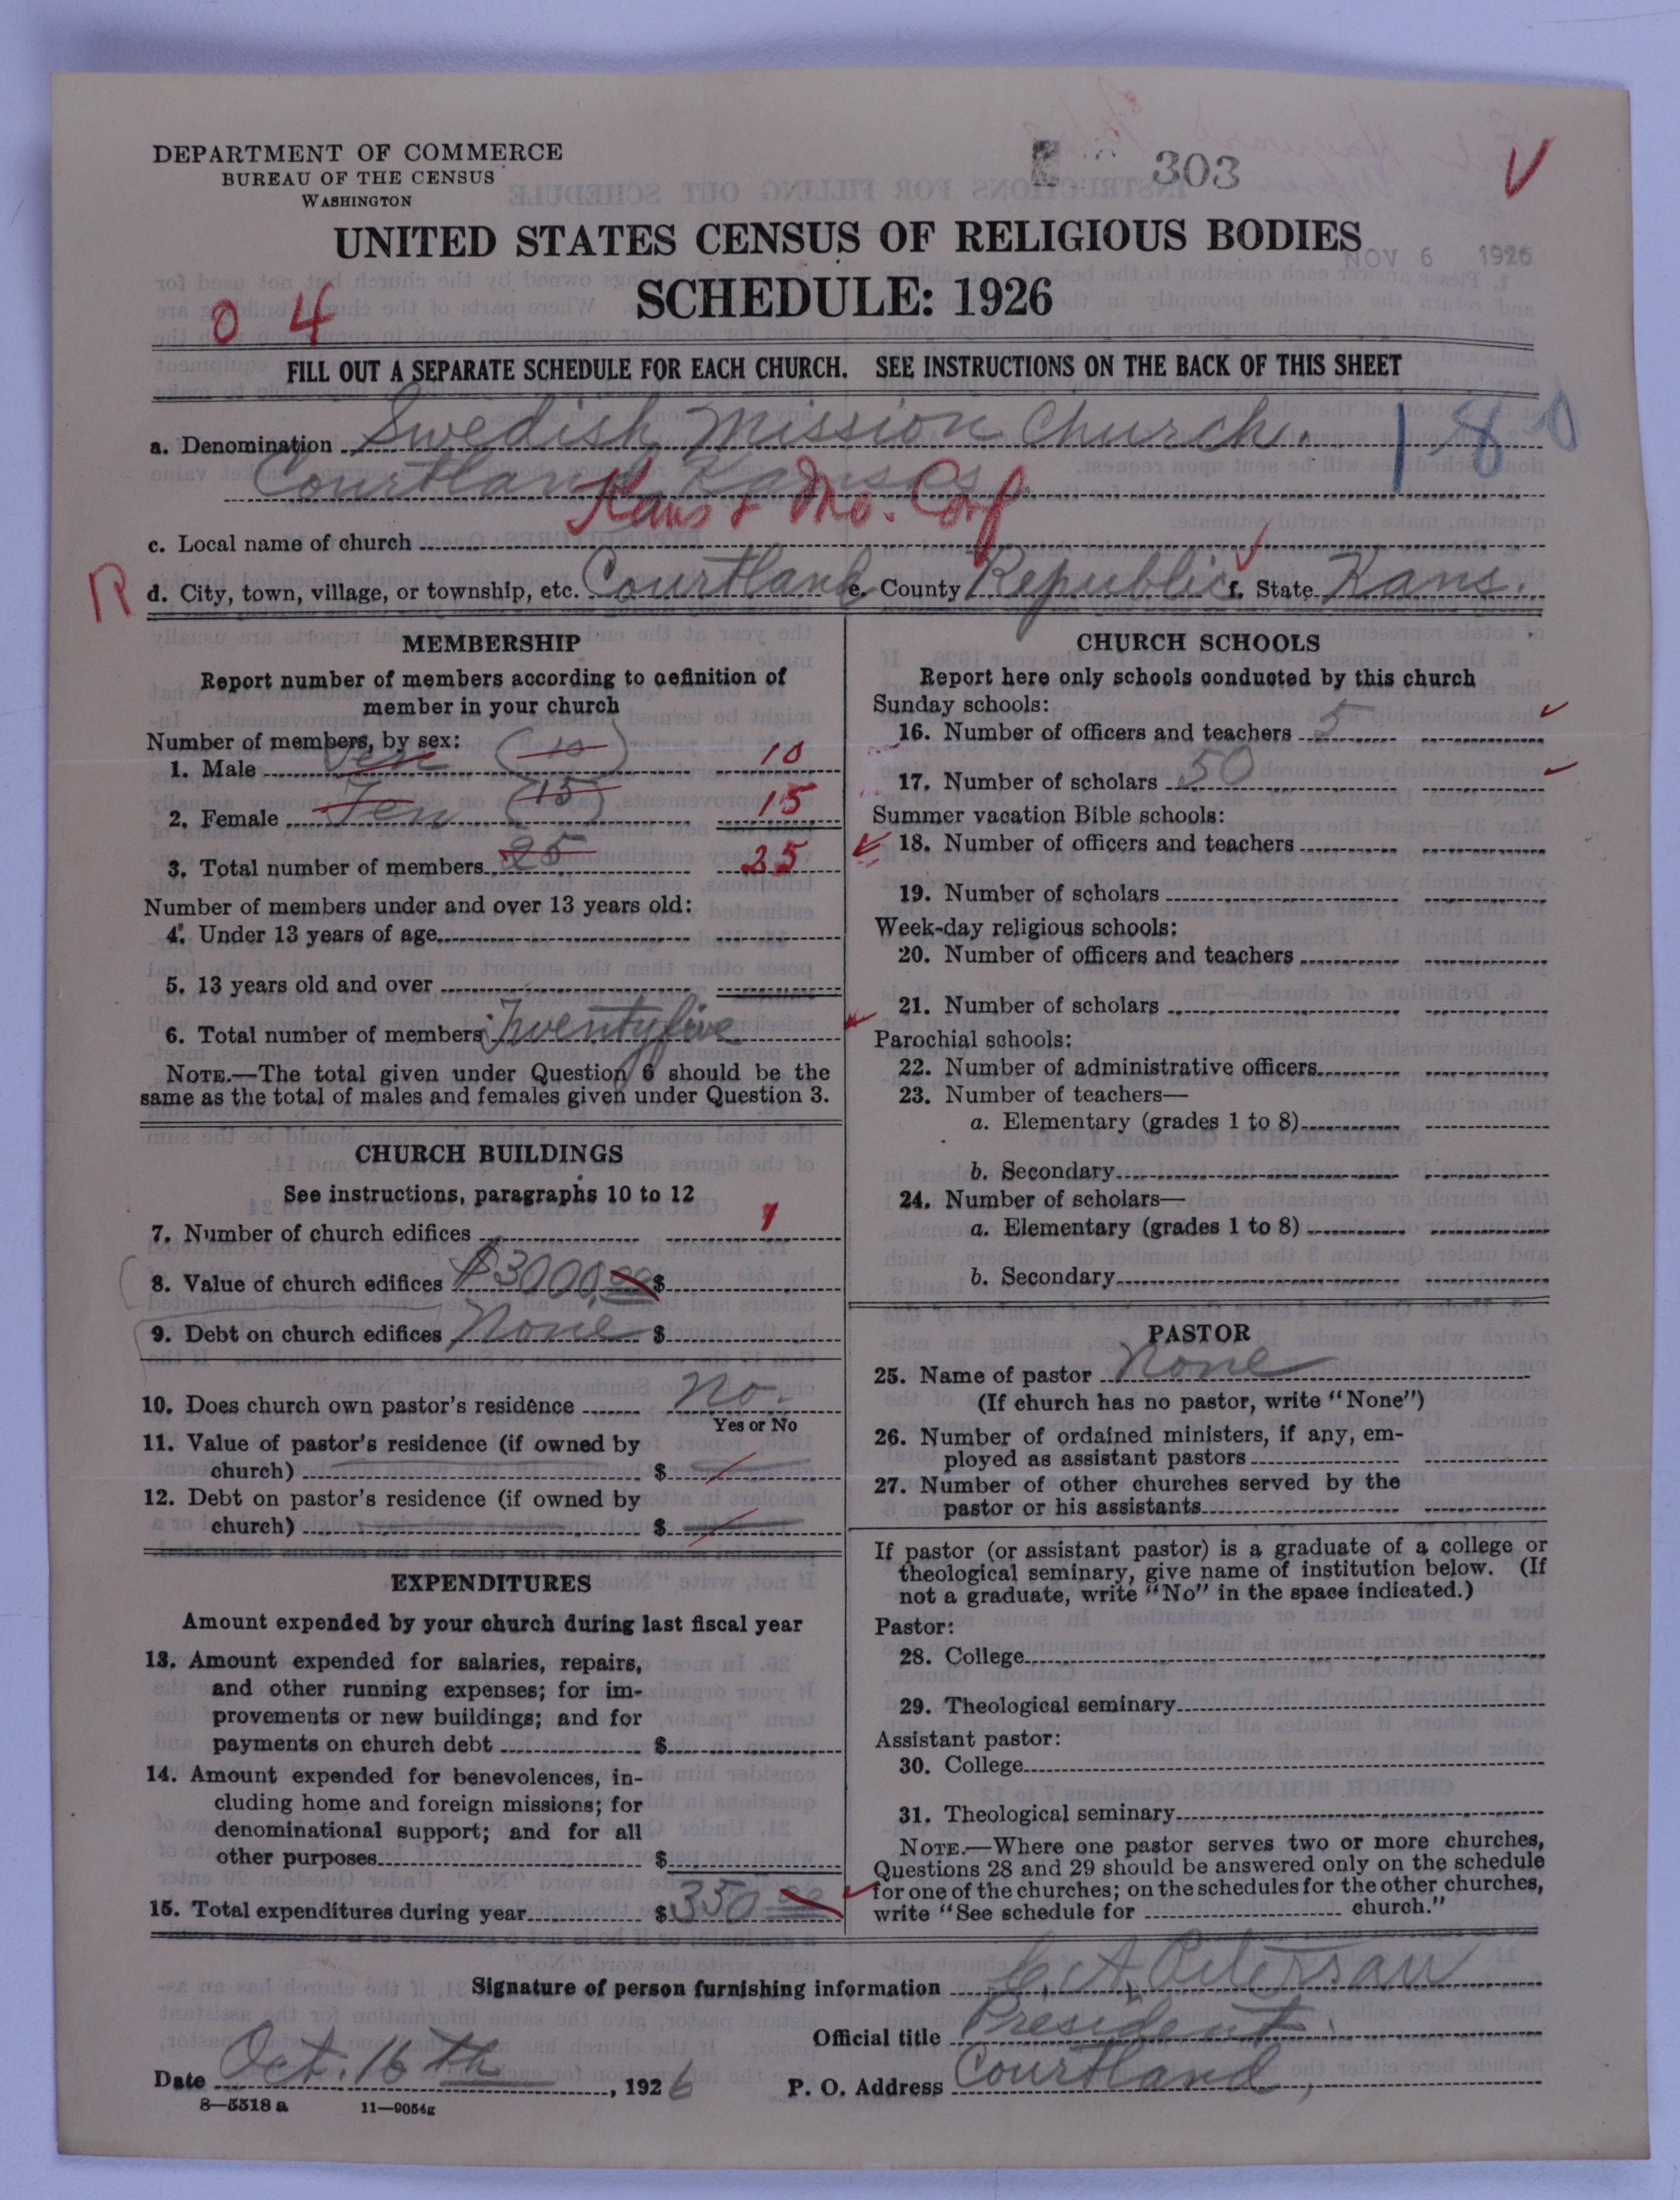 DEPARTMENT OF COMMERCE
BUREAU OF THE CENSUS
WASHINGTON
303
V
UNITED STATES CENSUS OF RELIGIOUS BODIES
NOV 6 1926
SCHEDULE: 1926
0 4
FILL OUT A SEPARATE SCHEDULE FOR EACH CHURCH. SEE INSTRUCTIONS ON THE BACK OF THIS SHEET
a. Denomination Swedish Mission Church. 1-80
Courtland Kansas
Kans & Mo. Conf
c. Local name of church
R
d. City, town, village, or township, etc. Courtland e. County Republic f. State Kans.
MEMBERSHIP
Report number of members according to definition of
member in your church
Number of members, by sex:
1. Male Ten (10) 10
2. Female Ten (15) 15
3. Total number of members 25 25
Number of members under and over 13 years old:
4. Under 13 years of age
5. 13 years old and over
6. Total number of members Twentyfive
NOTE.—The total given under Question 6 should be the
same as the total of males and females given under Question 3.
CHURCH BUILDINGS
See instructions, paragraphs 10 to 12
7. Number of church edifices 1
8. Value of church edifices $3000.00 $
9. Debt on church edifices None $
10. Does church own pastor's residence No.
Yes or No
11. Value of pastor's residence (if owned by
church) $
12. Debt on pastor's residence (if owned by
church) $
EXPENDITURES
Amount expended by your church during last fiscal year
13. Amount expended for salaries, repairs,
and other running expenses; for im-
provements or new buildings; and for
payments on church debt $
14. Amount expended for benevolences, in-
cluding home and foreign missions; for
denominational support; and for all
other purposes $
15. Total expenditures during year $350 00
CHURCH SCHOOLS
Report here only schools conducted by this church
Sunday schools:
16. Number of officers and teachers 5
17. Number of scholars 50
Summer vacation Bible schools:
18. Number of officers and teachers
19. Number of scholars
Week-day religious schools:
20. Number of officers and teachers
21. Number of scholars
Parochial schools:
22. Number of administrative officers
23. Number of teachers—
a. Elementary (grades 1 to 8)
b. Secondary
24. Number of scholars—
a. Elementary (grades 1 to 8)
b. Secondary
PASTOR
25. Name of pastor None
(If church has no pastor, write "None")
26. Number of ordained ministers, if any, em-
ployed as assistant pastors
27. Number of other churches served by the
pastor or his assistants
If pastor (or assistant pastor) is a graduate of a college or
theological seminary, give name of institution below. (If
not a graduate, write "No" in the space indicated.)
Pastor:
28. College
29. Theological seminary
Assistant pastor:
30. College
31. Theological seminary
NOTE.—Where one pastor serves two or more churches,
Questions 28 and 29 should be answered only on the schedule
for one of the churches; on the schedules for the other churches,
write "See schedule for church."
Signature of person furnishing information C. A. Peterson
Official title President.
Date Oct. 16th, 1926 P. O. Address Courtland,
8—5518 a 11—9054g